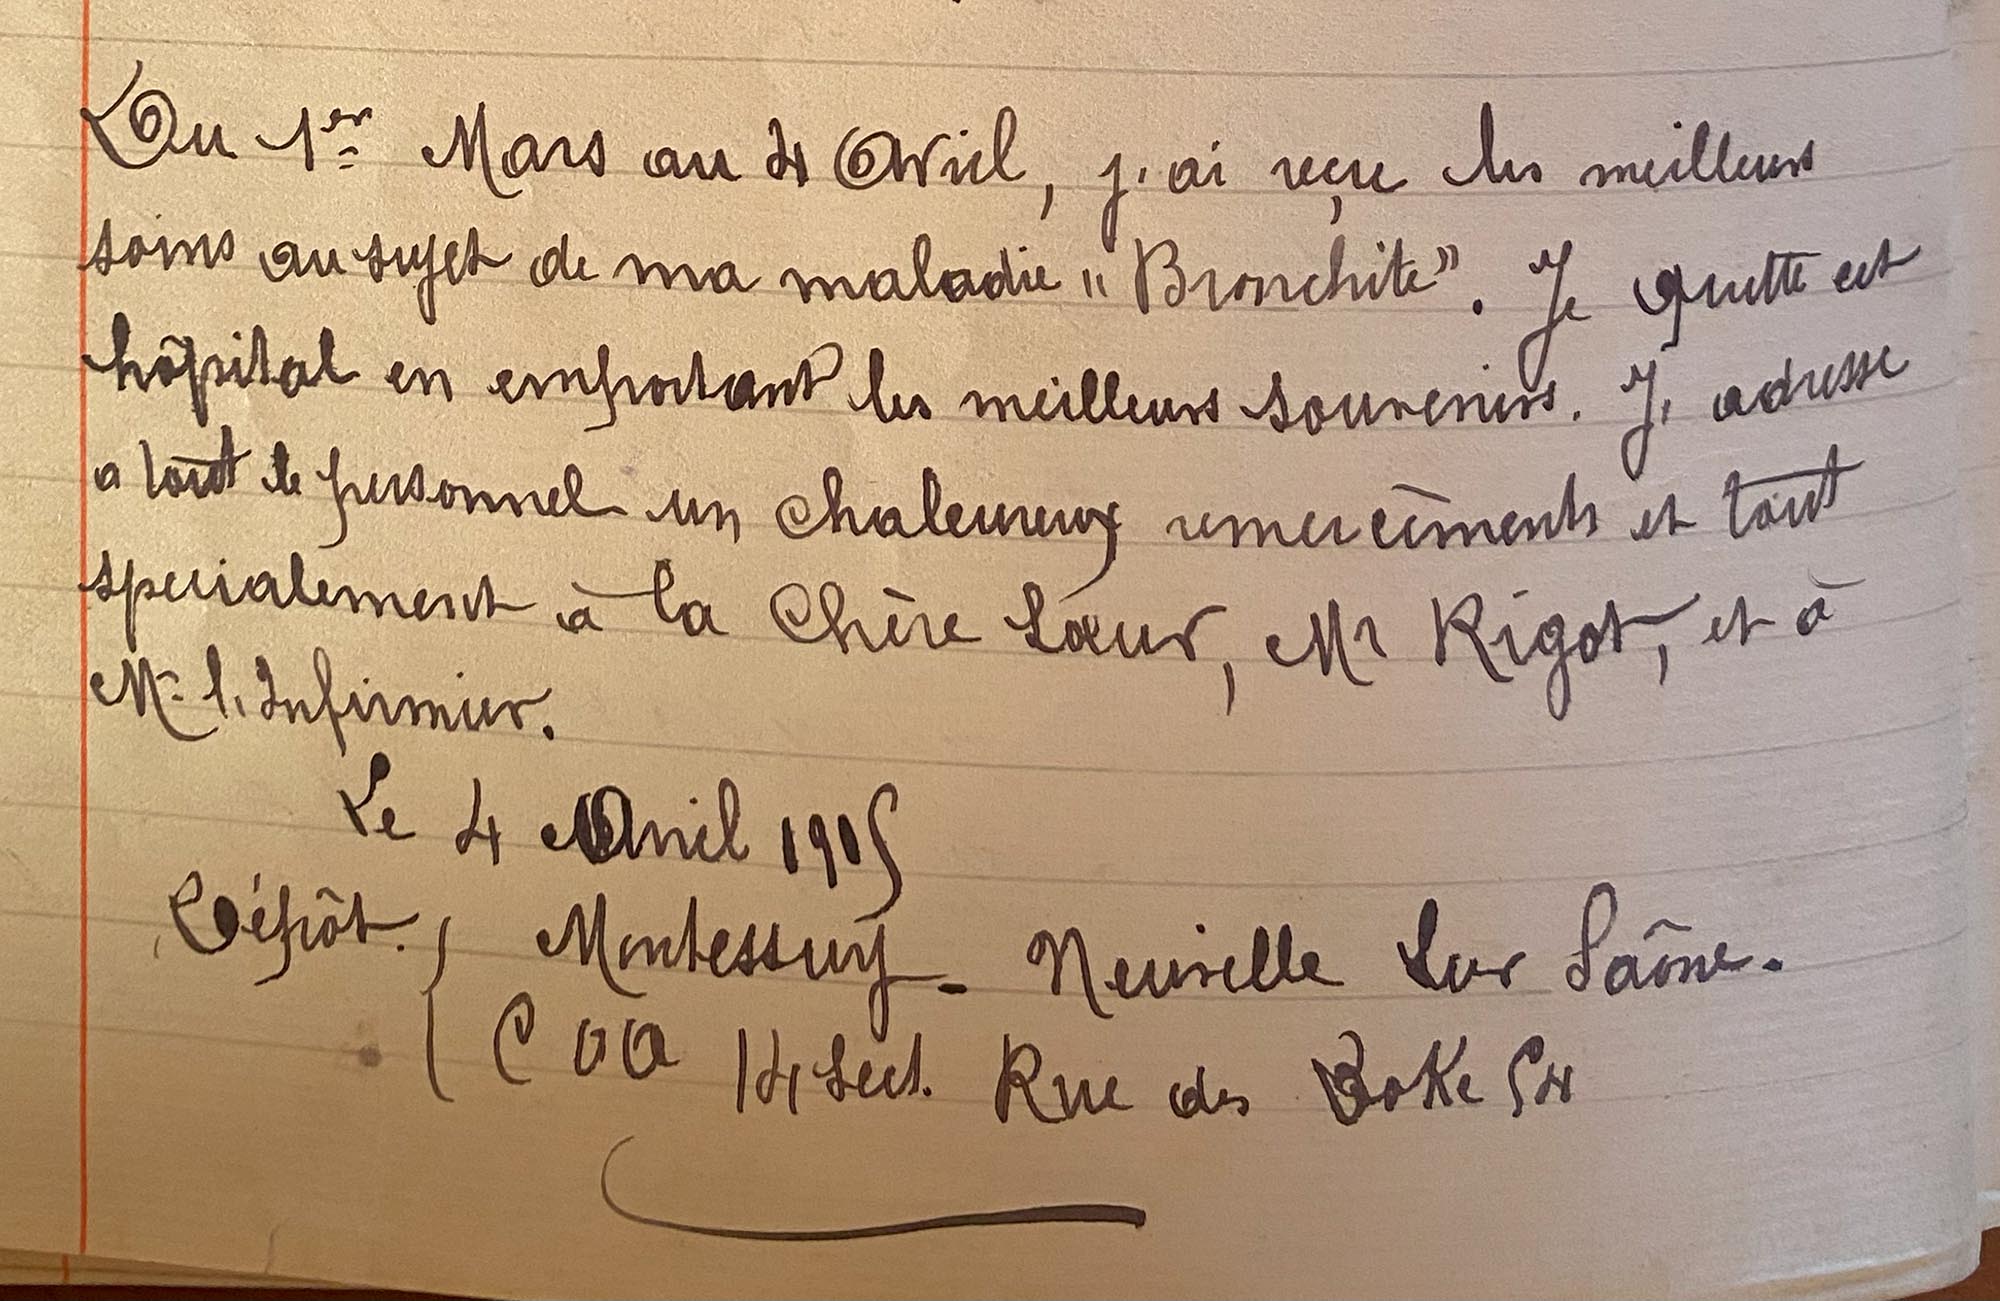 Du 1er Mars au 4 Avril, j'ai reçu les meilleurs
soins au sujet de ma maladie "Bronchite". Je quitte cet
hôpital en emportant les meilleurs souvenirs. J'adresse
a tout le personnel un chaleureux remerciments et tout
specialement à la Chère Sœur, Mr Rigot, et à
Mr l'Infirmier.
Le 4 Avril 1915
Dépôt. Montessuy - Neuville Sur Saône.
C O A 14 Sect. Rue des 54